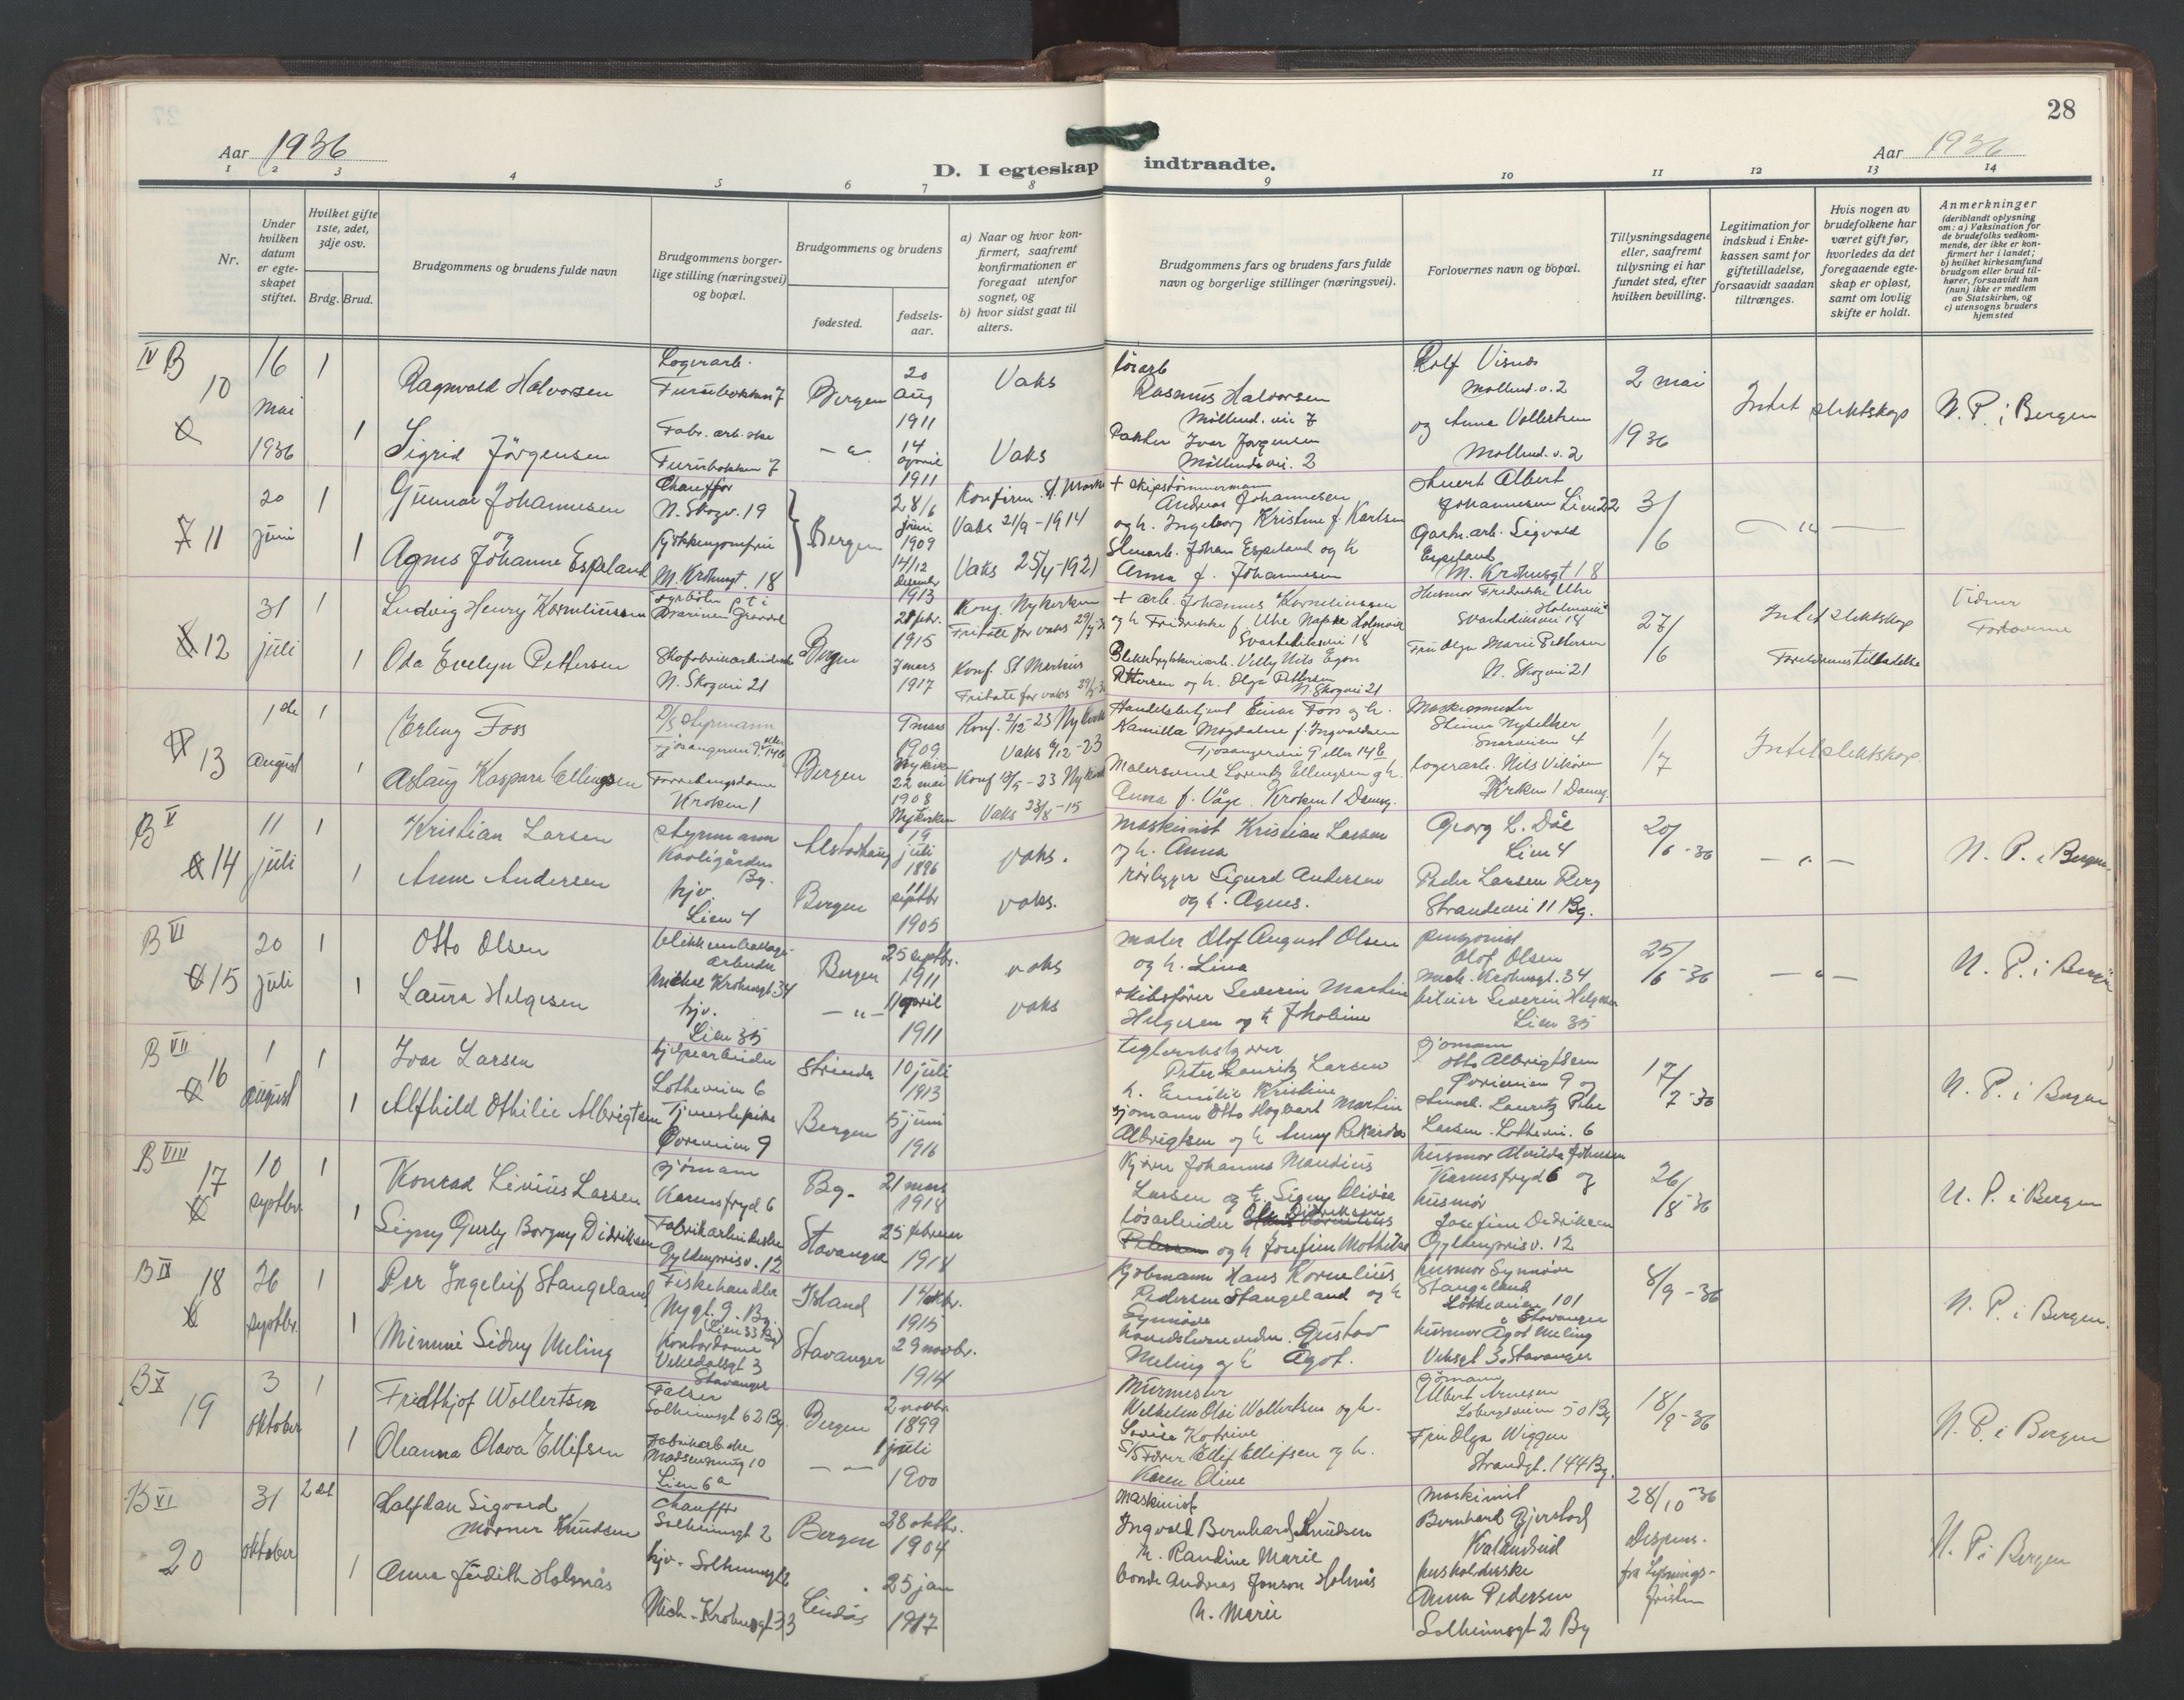 28
Aar 1936
D. I egteskap indtraadte.
Aar 1936
1 2 3 4 5 6 7 8 9 10 11 12 13 14
Nr.
Under hvilken datum er egteskapet stiftet.
Hvilket gifte 1ste, 2det, 3dje osv.
Brdg. Brud.
Brudgommens og brudens fulde navn
Brudgommens borgerlige stilling (næringsvei) og bopæl.
Brudgommens og brudens
fødested.
fødselsaar.
a) Naar og hvor konfirmert, saafremt konfirmationen er foregaat utenfor sognet, og
b) hvor sidst gaat til alters.
Brudgommens fars og brudens fars fulde navn og borgerlige stillinger (næringsvei).
Forlovernes navn og bopæl.
Tillysningsdagene eller, saafremt tillysning ei har fundet sted, efter hvilken bevilling.
Legitimation for indskud i Enkekassen samt for giftetilladelse, forsaavidt saadan tiltrænges.
Hvis nogen av brudefolkene har været gift før, hvorledes da det foregaaende egteskap er opløst, samt om lovlig skifte er holdt.
Anmerkninger
(deriblandt oplysning om: a) Vaksination for de brudefolks vedkommende, der ikke er konfirmert her i landet; b) hvilket kirkesamfund brudgom eller brud tilhører, forsaavidt han (hun) ikke er medlem av Statskirken, og c) utensogns bruders hjemsted
IV B 10
16 mai 1936
1
Ragnvald Halvorsen
Lagerarb.
Bergen
20 aug 1911
Vaks
Rasmus Halvorsen
Møllend. vei 7
Rolf Visnes
Møllend. v. 2
2 mai 1936
Intet slektskap
N. P. i Bergen
1
Sigrid Jörgensen
Fabr. arb.ske
14 april 1911
Vaks
Pakker Ivar Jørgensen
Møllendsvei. 2
og Anna Vollertsen
Møllend. v. 2
11
20 juni
1
Gunnar Johannesen
Chauffør
N. Skogv. 19
Bergen
28/6 juni 1909
Konfirm. St. Mark
Vaks 21/9 - 1914
+ skipstømmermann
Andreas Johannesen
og h. Ingeborg Kristine f. Karlsen
Albert
Johannesen Lien 22
3/6
1
og
Agnes Johanne Espeland
M. Krohnsgt. 18
14/12 desember 1913
Vaks 25/4 - 1921
Johan Espeland og h
Anna f. Johannesen
Garn. arb. Sigvald
Espeland
M. Krohnsgt 18
12
31 juli
1
Ludvig Henry Korneliussen
Bergen
21 febr. 1915
Konf. Nykirken
Fritatt for vaks
+ arb. Johannes Korneliussen
Svartediksvei 18
Husmor Fredrikke Uhe
Svartediksvei 18
27/6
Intet slektskap
1
Oda Evelyn Pettersen
Skofabrikarbeiderske
N. Skogvei 21
7 mars 1917
Konf. St Markus
Fritatt for vaks
Pettersen og h. Olga Pettersen
N. Skogvei 21
Fru Olga Marie Pettersen
N. Skogvei 21
Foreldrenes tilladelse
13
1ste august
1
Erling Foss
Styrmann
Bergen
9 mars 1909
Nykirken
Konf. 2/12 - 23 Nykirk
Vaks 6/12 - 23
Handelsbetjent Einar Foss og h.
Kamilla Magdalene f. Ingvaldsen
Maskinmester
Snarveien 4
1/7
Intet slektskap.
1
Aslaug Kaspara Ellingsen
Forretningsdame
Kroken 1
22 mai 1908
Nykirken
Vaks 23/8 - 15
Malersvend Lorentz Ellingsen og h.
Anna f. Våge. Kroken 1 Damsg.
Lagerarb. Nils Vikøren
Kroken 1 Damsg.
B V 14
11 juli
1
Kristian Larsen
styrmann
Alstadhaug
19 juli 1896
vaks.
maskinist Kristian Larsen
og h. Anna
Georg L. Dåe
Lien 4
20/6 - 36
N. P. i Bergen.
1
Anne Andersen
hjv.
Lien 4
Bergen
11 septbr 1905
vaks.
rørlegger Sigurd Andersen
og h. Agnes.
Peder Larsen Berg
Strandveien 11 Bg.
B VI 15
20 juli
1
Otto Olsen
blikkemballagearbeider
Michael Krohnsgt. 34
Bergen
25 septbr. 1911
vaks
maler Olof August Olsen
og h. Lina
pensjonist
Olof Olsen
Mich. Krohnsgt. 34
25/6 - 36
N. P. i Bergen
1
Laura Helgesen
hjv.
Lien 35
11 april 1911
vaks
skibsfører Severin Martin
Helgesen og h Jakobine
Severin Helgesen
Lien 35
B VII 16
1 august
1
Ivar Larsen
hjelpearbeider
Lotheveien 6
Strinda
10 juli 1913
Peter Lauritz Larsen
h. Emilie Kristine
sjømann
Otto Albrigtsen
Øvreveien 9 og
17/7 - 36
N. P. i Bergen
1
Alfhild Othilie Albrigtsen
Tjenestepike
Øvreveien 9
Bergen
5 juni 1916
sjømann Otto Hagbart Martin
Albrigtsen og h Anny Rikarda
Lauritz Peder
Larsen. Lothevei. 6
B VIII 17
10 septbr
1
Konrad Livius Larsen
sjømann
Kanesfryd 6
Bg.
21 mars 1918
Kjører Johannes Mandius
Larsen og h. Signy Olivia
husmor Alvilda Johnsen
Kanesfryd 6 og
26/8 - 36
N. P. i Bergen
1
Signy Gurly Borgny Didriksen
Fabrikarbeiderske
Gyldenprisv. 12
Stavanger
25 februar 1918
løsarbeider Didriksen
og h Josefine Mathilde
husmor
Josefine Didriksen
Gyldenprisv. 12
B IX 18
26 septbr.
1
Per Ingeleif Stangeland
Fiskehandler
Nygt. 9. Bg.
(Lien 33 Bg)
Island
1 oktbr. 1915
Kjøbmann Hans Kornelius
Pedersen Stangeland og h
Synnøve
husmor Synnøve
Stangeland
Lotheveien 101
Stavanger
8/9 - 36
N. P. i Bergen.
1
Mimmi Sidny Meling
Kontordame
Vikedalsgt 3
Stavanger
Stavanger
29 novbr. 1914
Gustav
Meling og h Ågot.
husmor Ågot Meling
Stavanger
B X 19
3 oktober
1
Fridthjof Wollertsen
Falser
Solheimsgt 62 Bg.
Bergen
2 novbr 1899
Murmester
Wilhelm Olai Wollertsen og h.
Lovise Katrine
sjømann
Albert Arnesen
Løbergsveien 50 Bg
18/9 - 36
N. P. i Bergen
1
Oleanna Olava Ellifsen
Fabrikarb.ske
Madsensmug 10
Lien 6a
1 juli 1900
S/S Fører Ellef Ellifsen og h.
Karen Oline
Fru Olga Wiggen
Strandgt. 144 Bg.
B XI 20
31 oktober
2det
Halfdan Sigvard
Mørner Knudsen
Chauffør
Solheimsgt 2
Bergen
28 oktbr. 1904
Maskinist
Ingvald Bernhard Knudsen
h. Randine Marie
maskinist
Bernhard Gjerstad
Kalandseid
28/10 - 36
Dispens. fra lysningsfristen
N. P. i Bergen
1
Anna Judith Holmås
hjv. Solheimsgt 2
Mich. Krohnsgt 33
Lindås
25 jan 1917
bonde Andreas Jonson Holmås
h. Marie
husholderske
Anna Pedersen
Solheimsgt 2 Bg